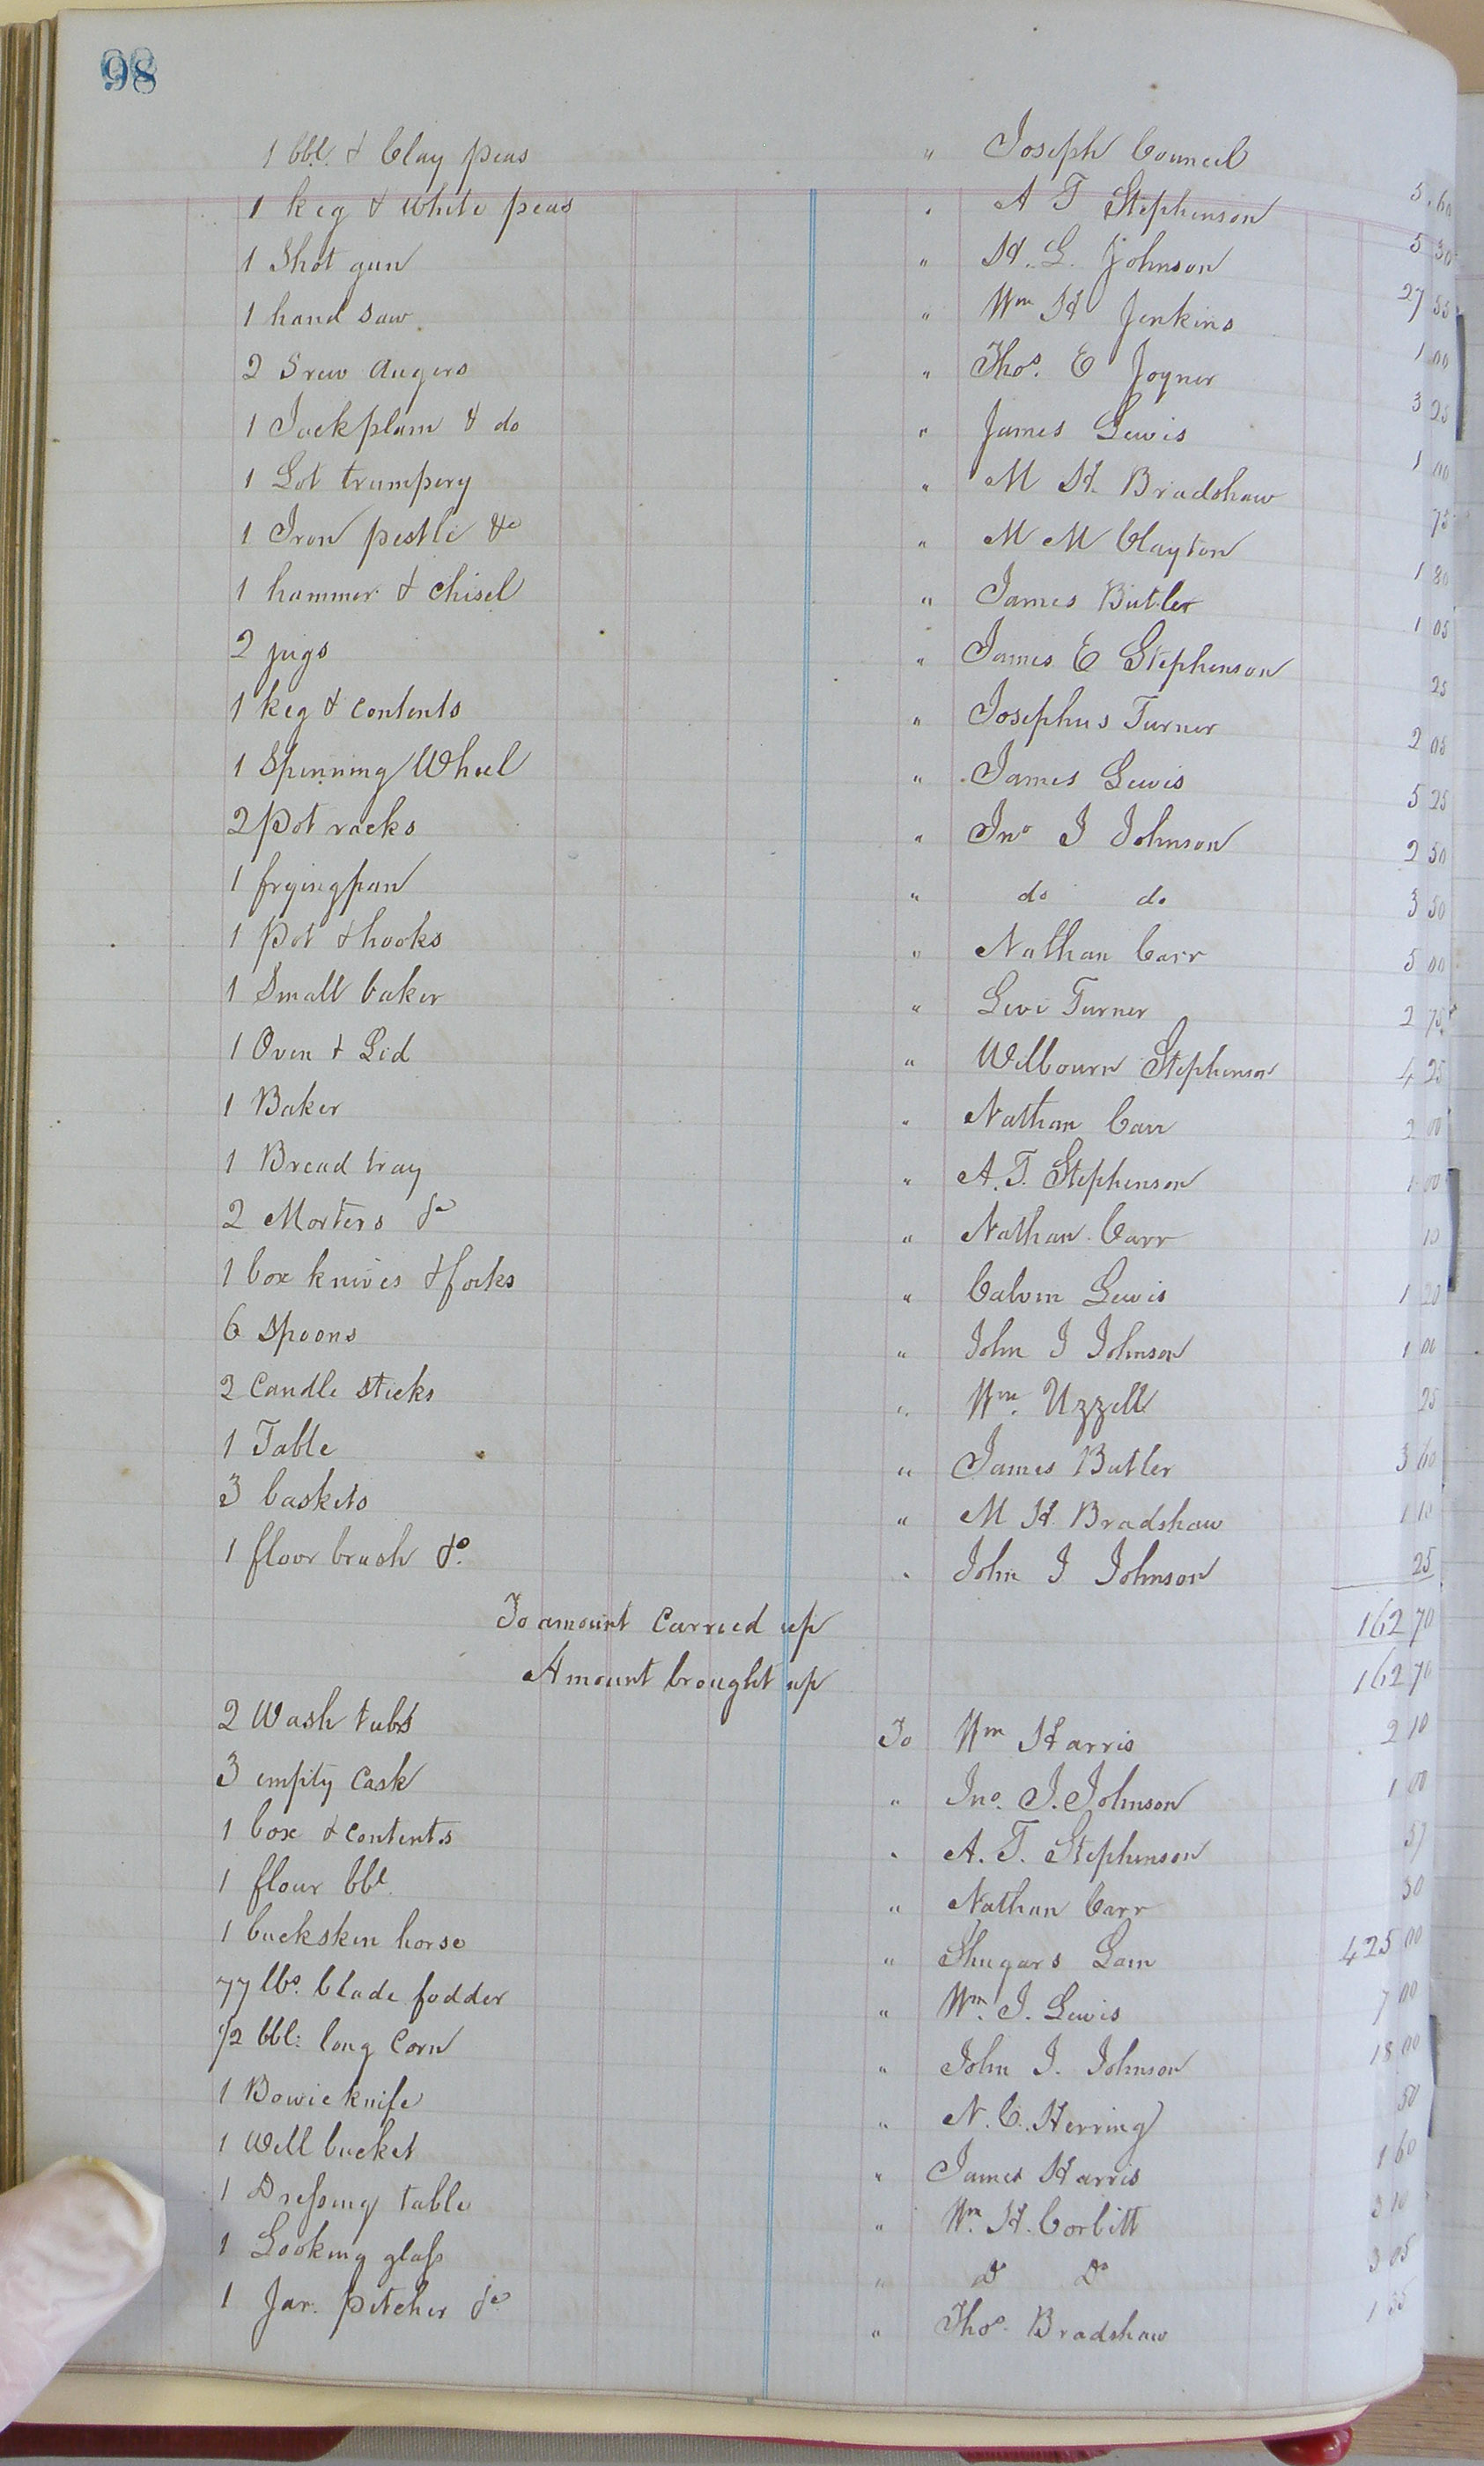 98
1 bbl. & Clay peas " Joseph Council 5.60
1 keg & White peas " A T Stephenson 5 30
1 Shot gun " H. L. Johnson 27 55
1 hand Saw " Wm H Jenkins 1 00
2 Srew Augers " Thos. E Joyner 3 25
1 Jackplain & do " James Lewis 1 00
1 Lot trumpery " M H. Bradshaw 75
1 Iron pestle &c " M M Clayton 1 80
1 hammer & Chisel " James Butler 1 05
2 jugs " James E Stephenson 25
1 keg & Contents " Josephus Turner 2 05
1 Spinning Wheel " James Lewis 5 25
2 Pot racks " Jno J Johnson 2 50
1 fryingpan " do do 3 50
1 Pot & hooks " Nathan Carr 5 00
1 Small baker " Levi Turner 2 75
1 Oven & Lid " Wilbourn Stephenson 4 25
1 Baker " Nathan Carr 2 00
1 Bread tray " A. T. Stephenson 1 00
2 Morters &c " Nathan Carr 10
1 box knives & forks " Calvin Lewis 1 20
6 Spoons " John J Johnson 1 00
2 Candle Sticks " Wm. Uzzell 25
1 Table " James Butler 3 60
3 baskets " M H. Bradshaw 1 10
1 floor brush &c. " John J Johnson 25
To amount Carried up 162 70
Amount brought up 162 70
2 Wash tubs To Wm Harris 2 10
3 empty Cask " Jno. J. Johnson 1 00
1 box & Contents " A. T. Stephenson 57
1 flour bbl. " Nathan Carr 30
1 buckskin horse " Shugars Lain 425 00
77 lbs. blade fodder " Wm. J. Lewis 7 00
1/2 bbl. long Corn " John J. Johnson 18 00
1 Bowie knife " N. C. Herring 50
1 Well bucket " James Harris 1 60
1 Dressing table " Wm. H. Corbitt 3 10
1 Looking glass " Do Do 3 05
1 Jar. pitcher &c " Thos. Bradshaw 1 55